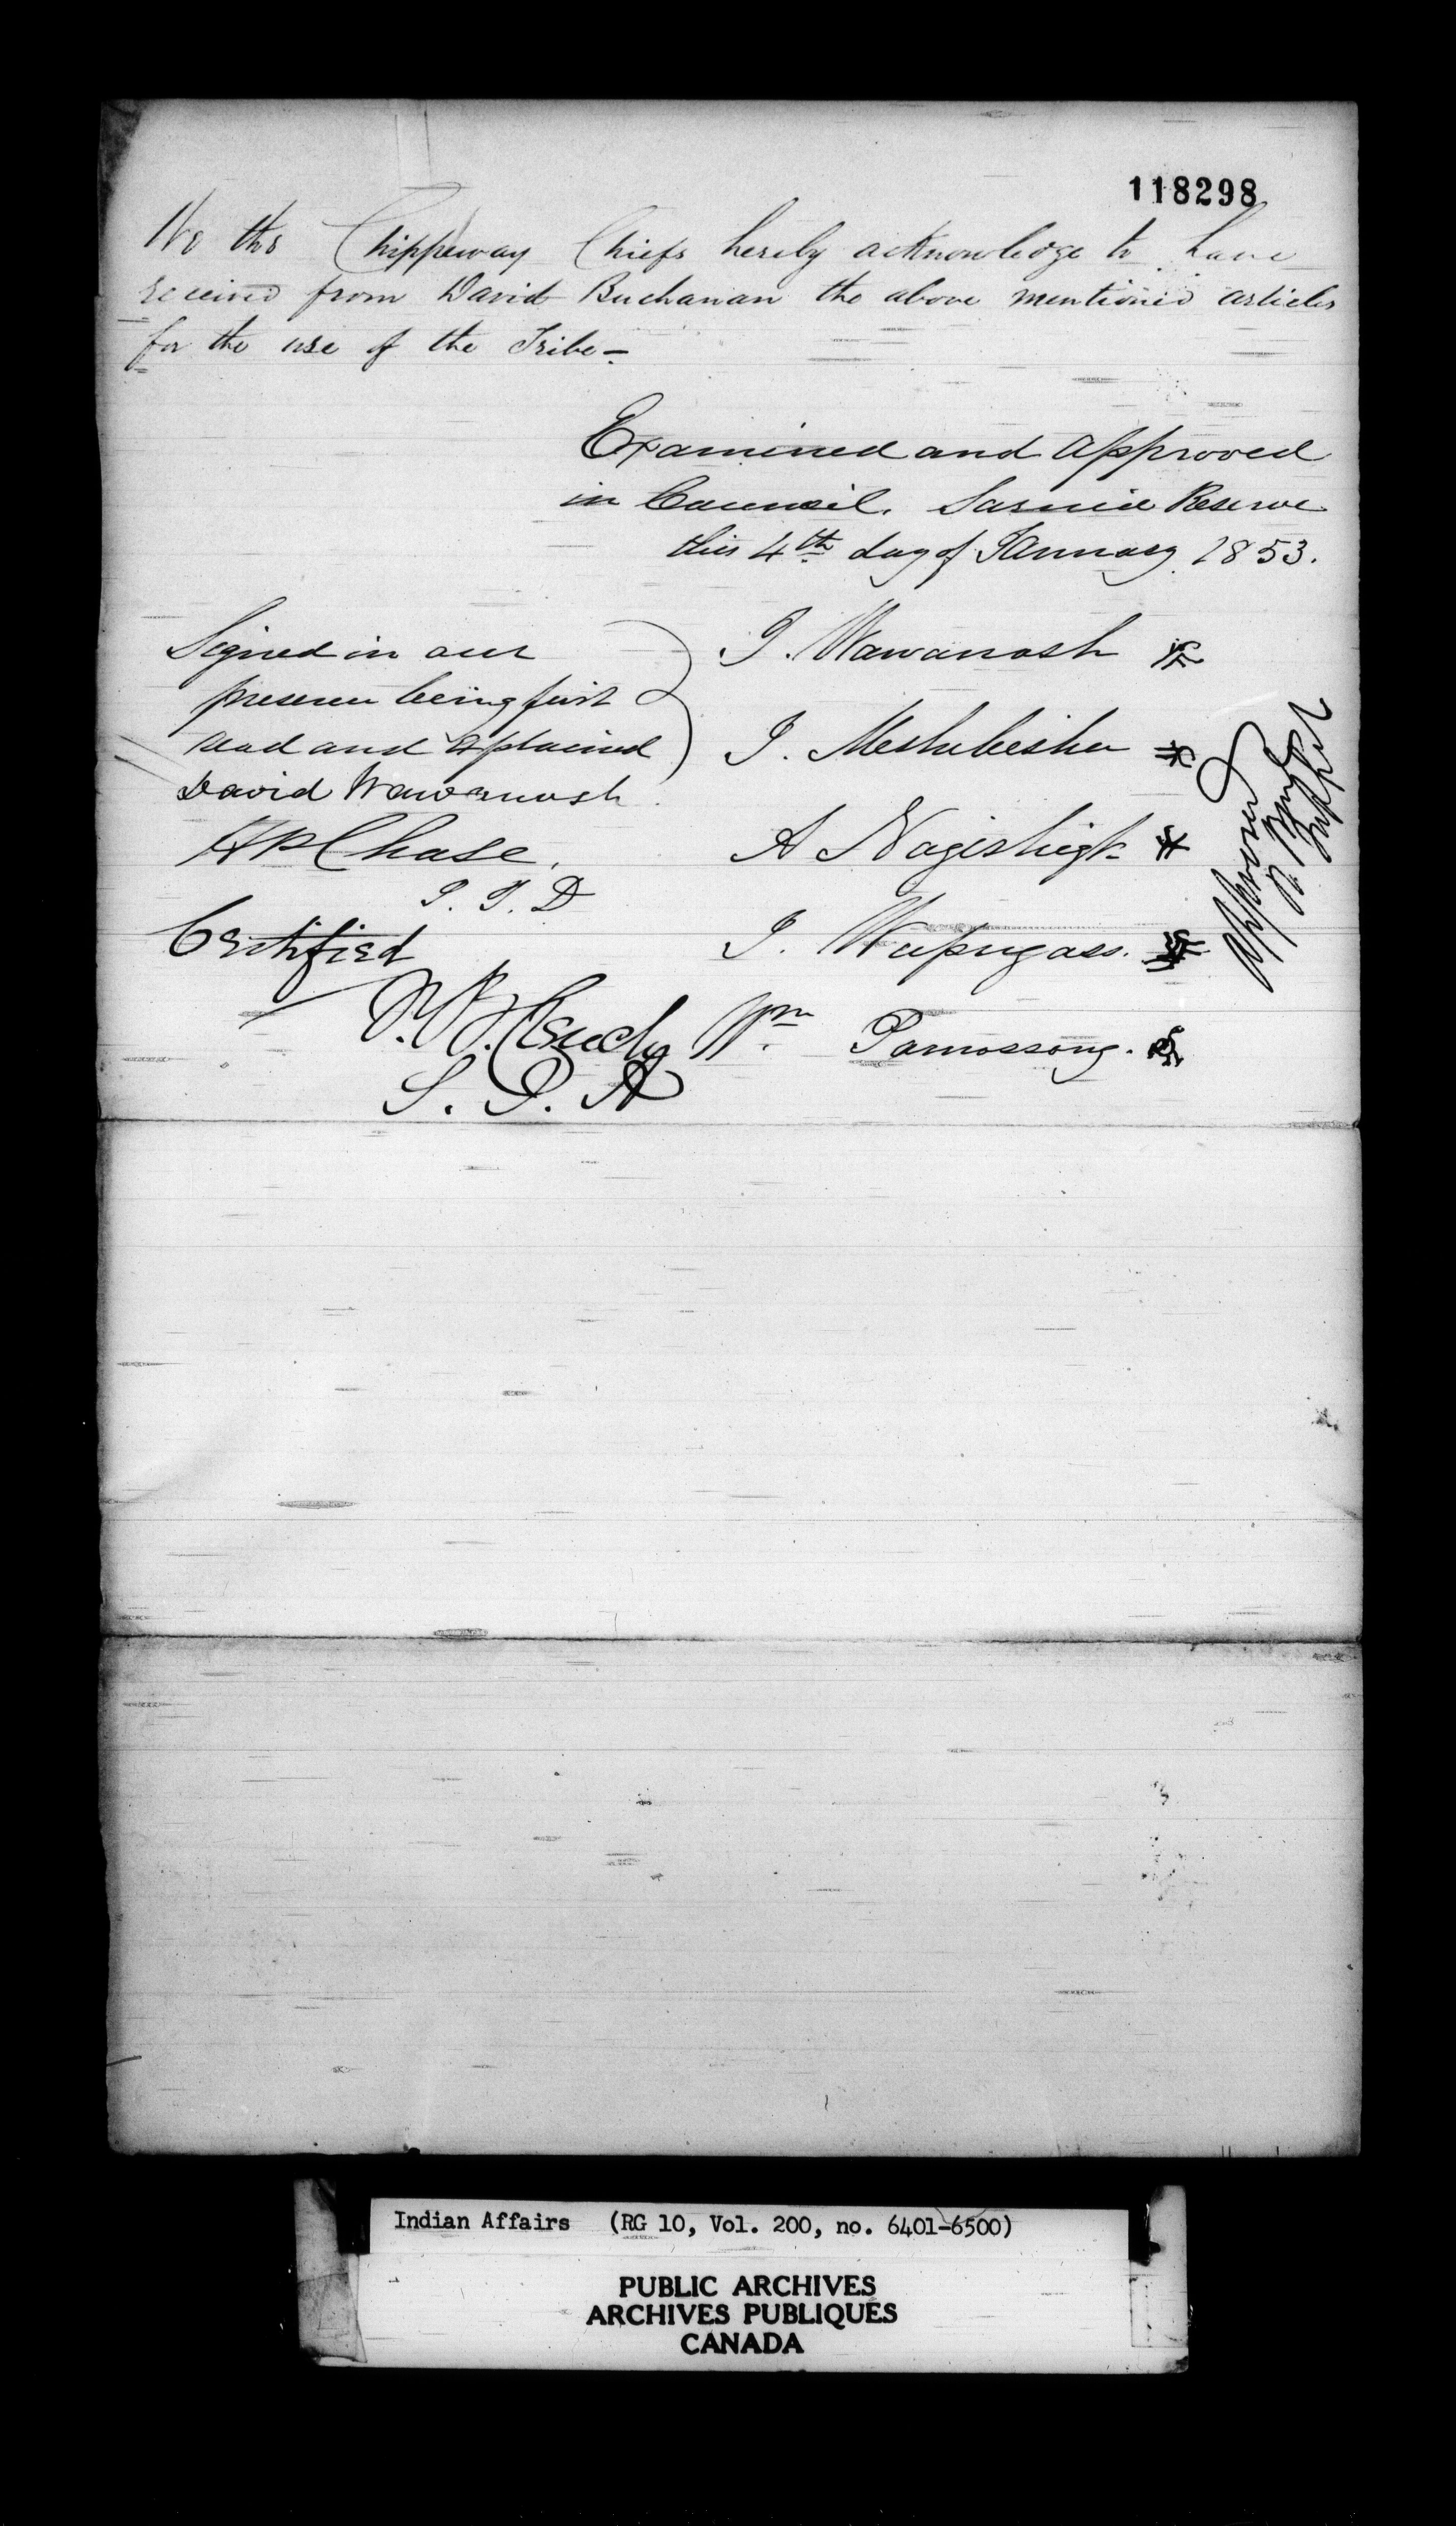 118298
We the Chippeway Chiefs hereby acknowledge to have
received from David Buchanan the above mentioned articles
for the use of the Tribe -
Examined and approved
in Council. Sarnia Reserve
this 4th day of January 1853.
Signed in our
presence being first
read and explained
David Wawanosh
HP Chase.
Certified
S. I. A
J. Wawanosh
J. Meshebeshee
A Nageshigk
J. Wapugass.
Wm Pamossong.
Approved
Indian Affairs (RG 10, Vol. 200, no. 6401-6500)
PUBLIC ARCHIVES
ARCHIVES PUBLIQUES
CANADA